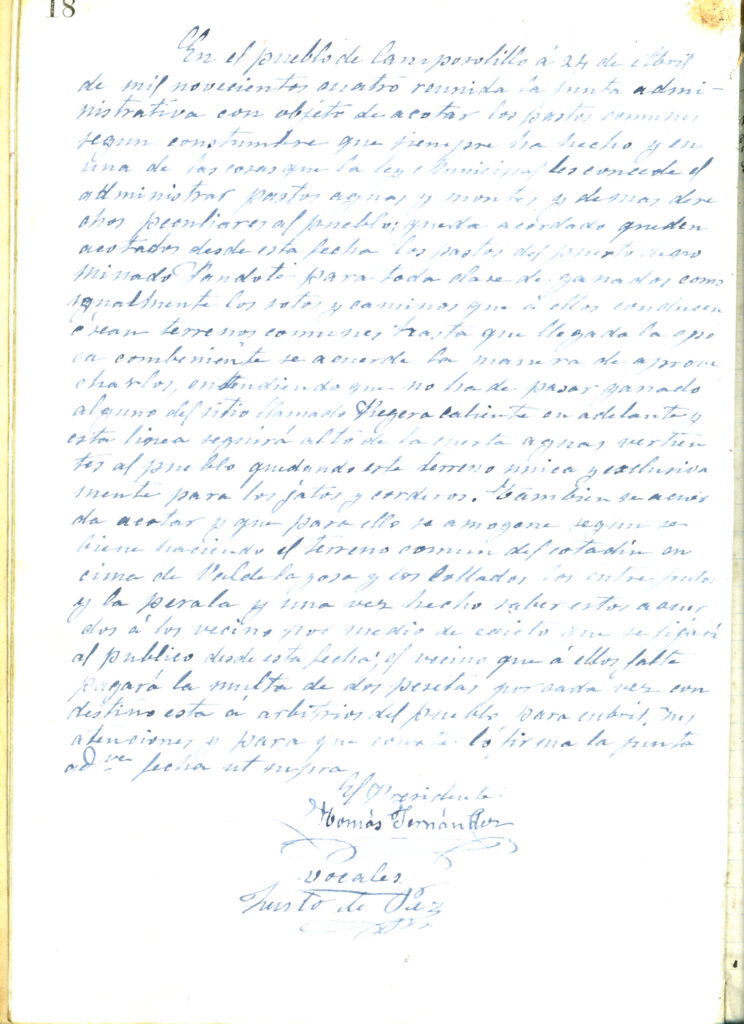 18
En el pueblo de Camposolillo á 24 de Abril
de mil novecientos cuatro reunida la junta admi-
nistrativa con objeto de acotar los pastos comunes
segun constumbre que siempre ha hecho y en
una de las cosas que la ley Municipal les concede el
administrar pastos aguas y montes y demas dere
chos peculiares al pueblo; queda acordado queden
acotados desde esta fecha los pastos del puerto deno
minado Pandote para toda clase de ganados como
ygualmente los sotos y caminos que á ellos conducen
ó sean terrenos comunes hasta que llegada la epo
ca combeniente se acuerde la manera de aprove
charlos, entendiendo que no ha de pasar ganado
alguno del sitio llamado Regera caliente en adelante y
esta linea seguirá alto de la cuesta aguas vertien
tes al pueblo quedando este terreno unica y exclusiva
mente para los jatos y corderos. Tambien se acuer
da acotar y que para ello se amogone segun se
biene haciendo el terreno comun del cotadin en
cima de Valdelagosa y los Collados los entre
y la perala y una vez hecho saber estos acuer
dos á los vecino por medio de edicto que se fijará
al publico desde esta fecha; el vecino que á ellos falte
pagará la multa de dos pesetas por cada vez con
destino esta á arbitrios del pueblo para cubrir sus
atenciones y para que conste lo firma la junta
adve fecha ut supra
El Presidente
Tomás Fernández
Vocales
Justo de